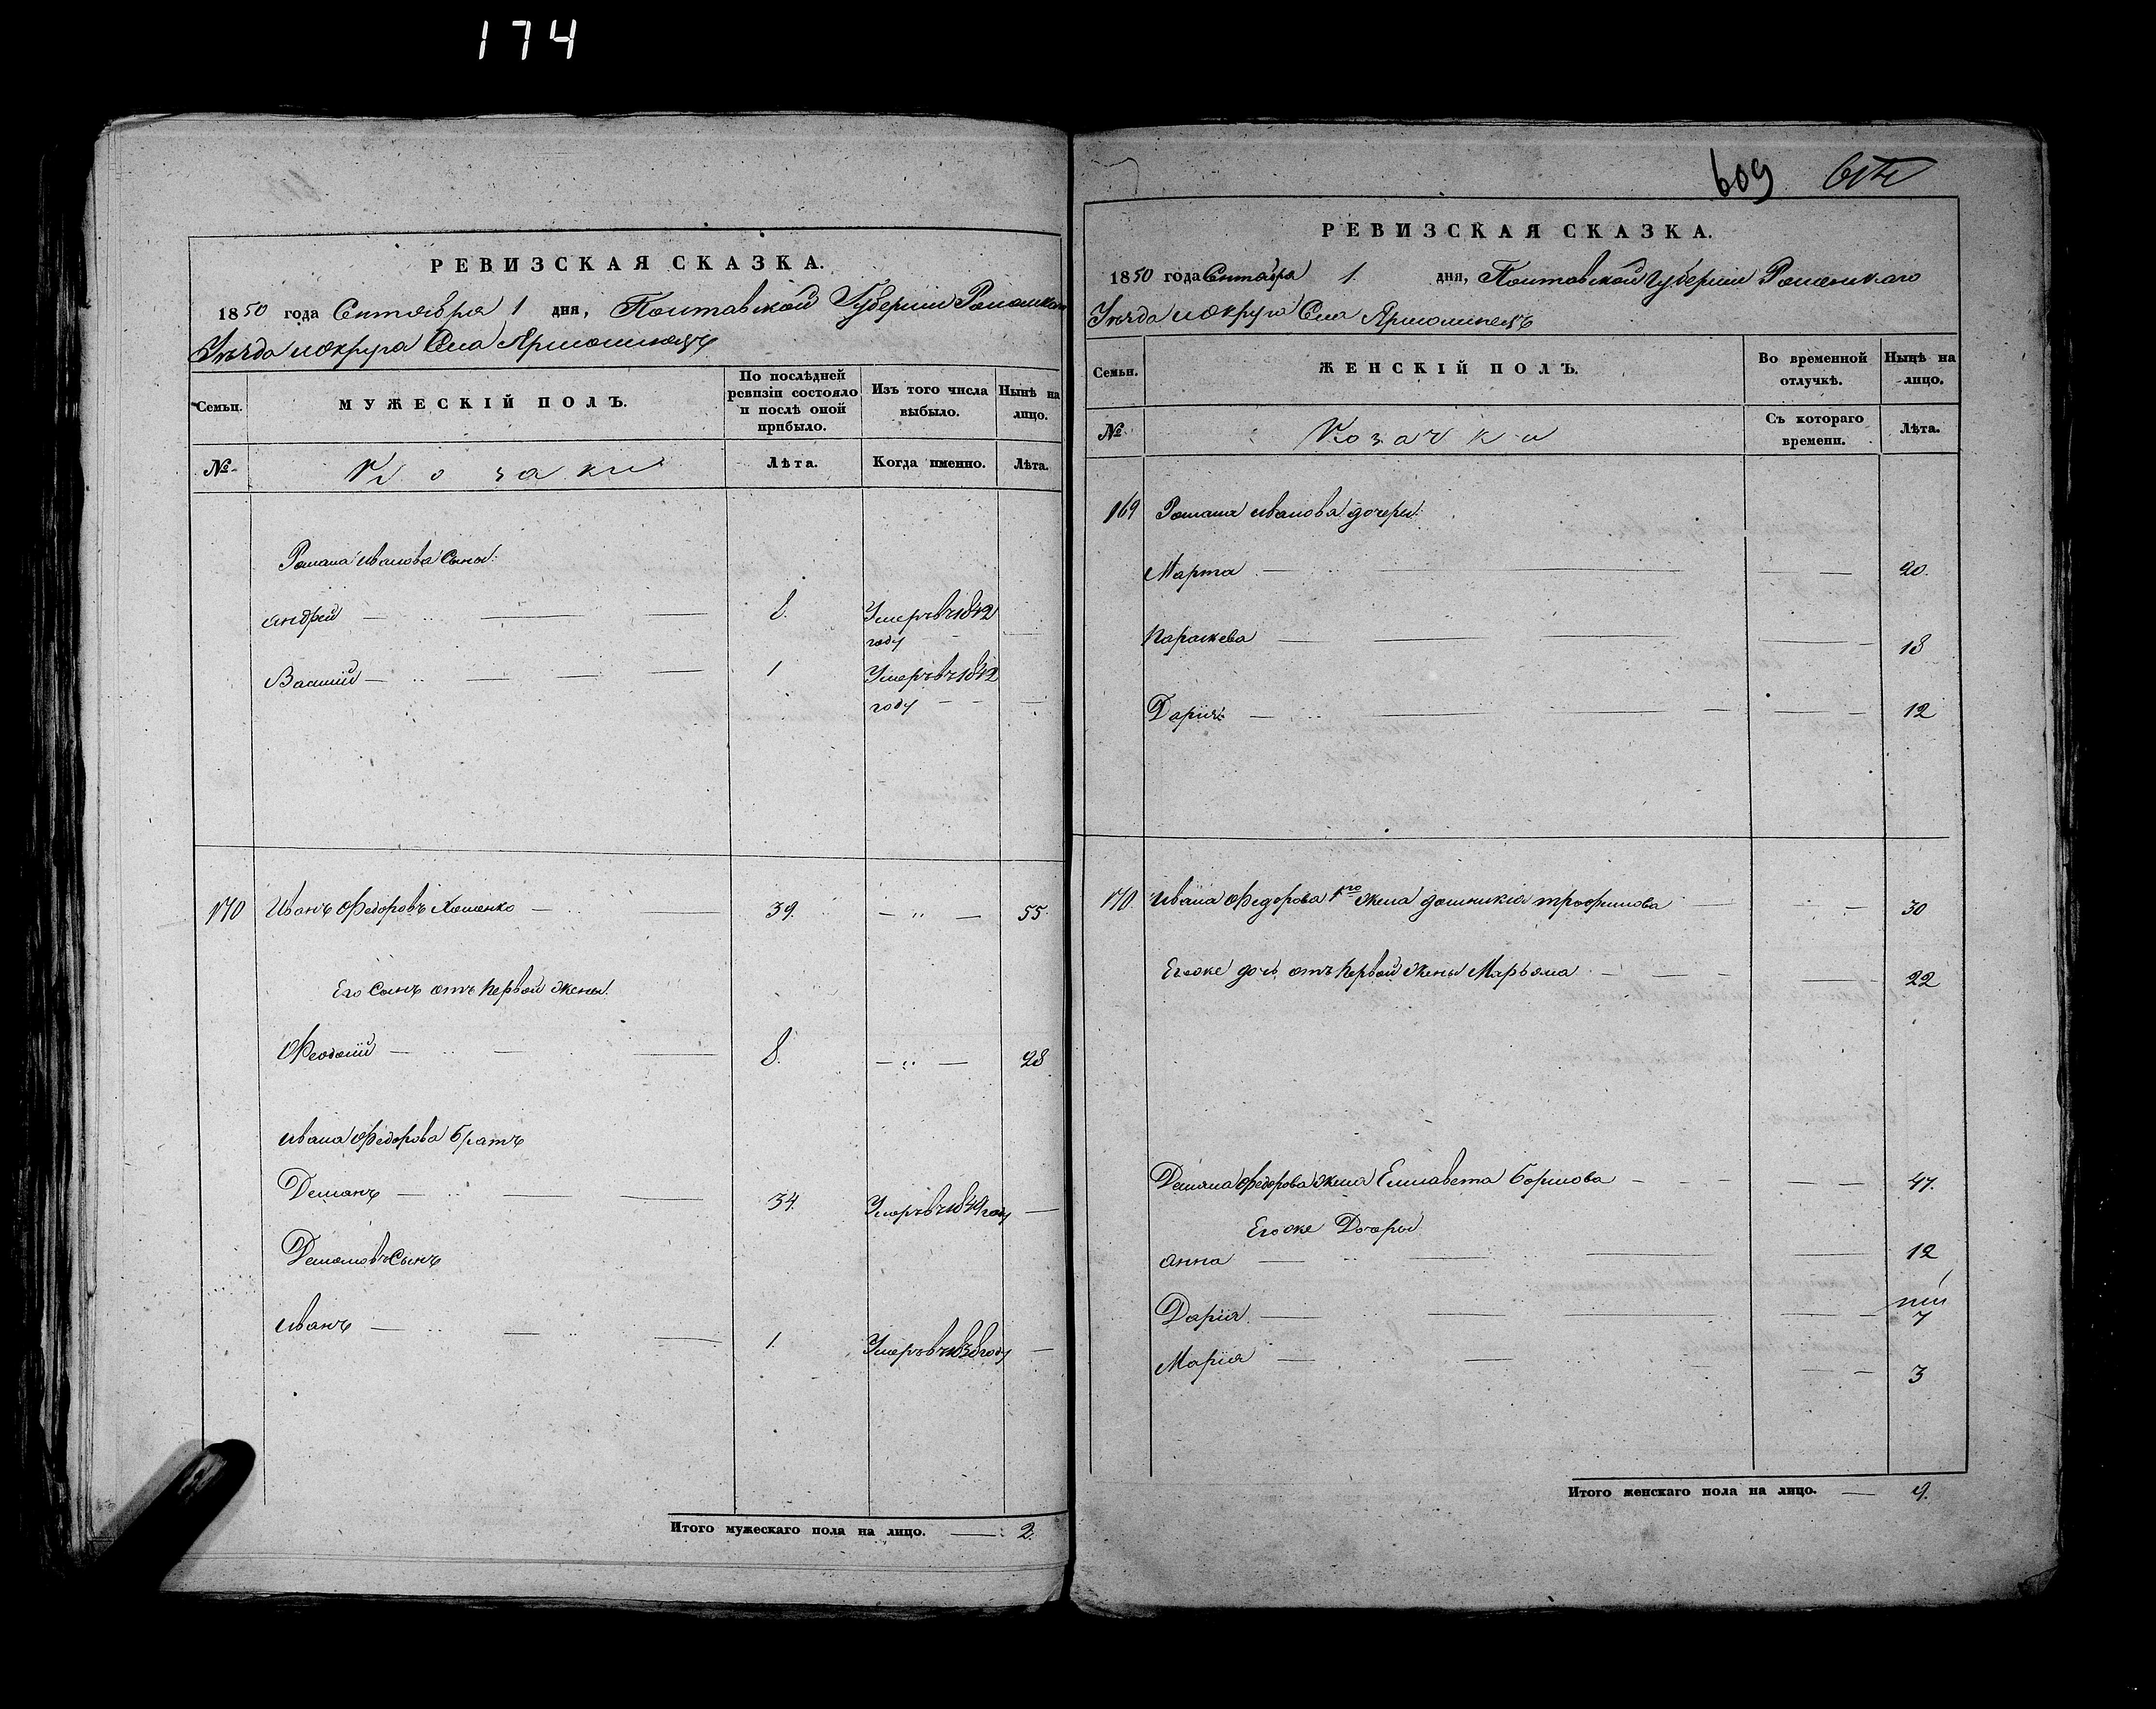 174
РЕВИЗСКАЯ СКАЗКА.
1850 года Сентября 1 дня, Полтавской Губернии Роменского
Уезда и Округа Села Ярмолинецъ
Семьи. МУЖЕСКІЙ ПОЛЪ. По послѣдней ревизіи состояло и послѣ оной прибыло. Изъ того числа выбыло. Нынѣ на лицо.
№ Козаки Лѣта. Когда именно. Лѣта.
Романа Иванова Сыны:
Андрей 8. Умеръ въ 1842 году
Василий 1 Умеръ въ 1842 году
170 Иванъ Федоровъ Хоменко 39. 55.
Его Сынъ отъ первой жены.
Феодосий 8. 28
Ивана Федорова братъ
Демянъ 34. Умеръ въ 1849 году
Демяновъ Сынъ
Иванъ 1. Умеръ въ 1838 году
Итого мужескаго пола на лицо. 2.
609
РЕВИЗСКАЯ СКАЗКА.
1850 года Сентября 1. дня, Полтавской Губернии Роменского
Уезда и Округа Села Ярмолинецъ
Семьи. ЖЕНСКІЙ ПОЛЪ. Во временной отлучкѣ. Нынѣ на лицо.
№ Козачки Съ котораго времени. Лѣта.
169 Романа Иванова дочери:
Марта 20.
Параскева 18
Дарія 12
170. Ивана Федорова жена Домникия Трофимова 30
Его же дочь отъ первой жены Марьяна 22
Демяна Федорова жена Елисавета Борисова 47.
Его же Дочери
Анна 12
Дарія 7
Марія 3
Итого женскаго пола на лицо. 9.